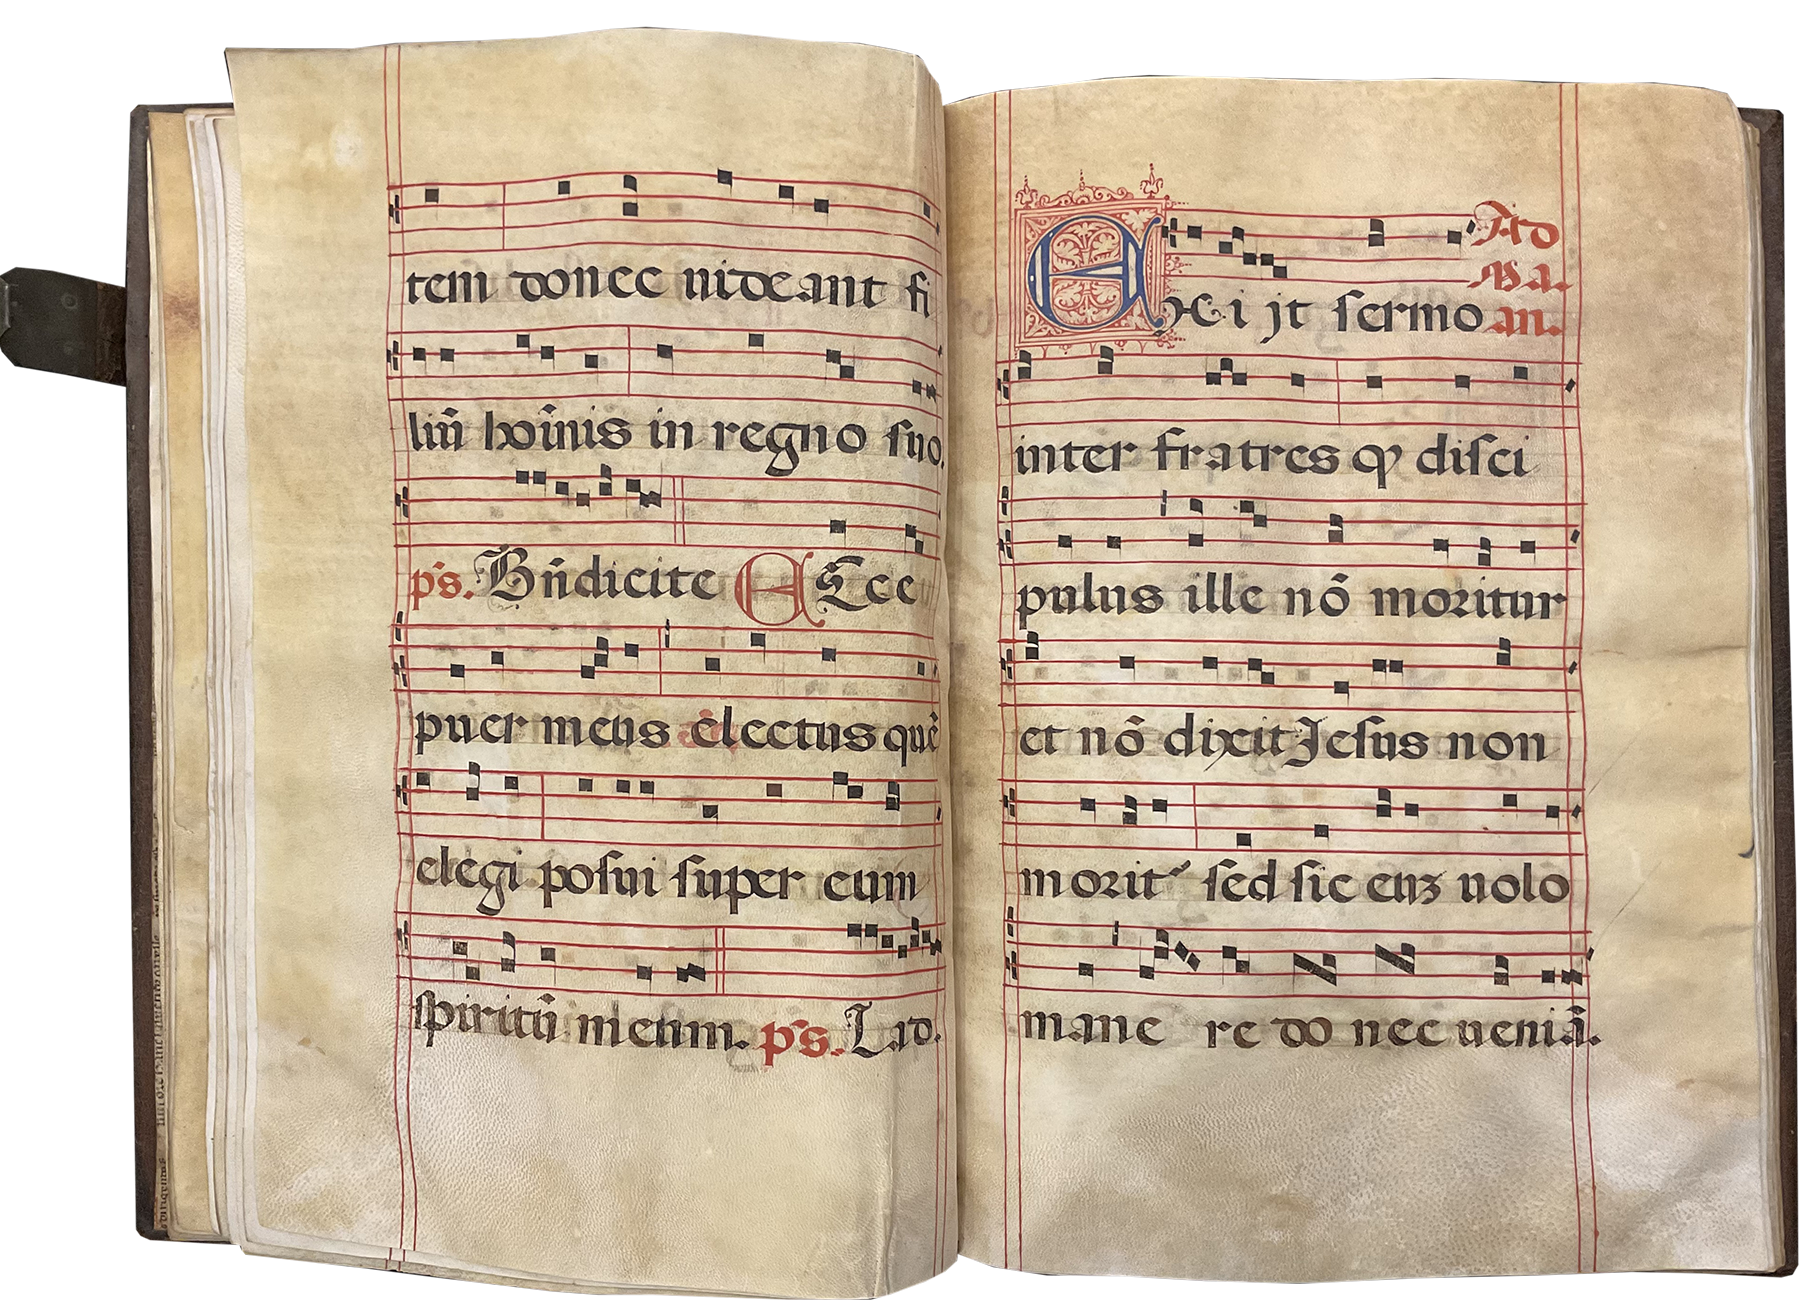 tem donec uideant fi
liũ hoĩnis in regno suo.
ps. Bñdicite Ecce
puer meus electus quẽ
elegi posui super eum
spiritũ meum. ps. Lad.
Exijt sermo Ad
Ma.
an.
inter fratres ꝙ disci
pulus ille nõ moritur
et nõ dixit Jesus non
morit᾽ sed sic euʒ uolo
mane re do nec ueniã.